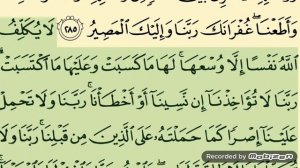 وَأَطَعْنَا ۖ غُفْرَانَكَ رَبَّنَا وَإِلَيْكَ الْمَصِيرُ ٢٨٥ لَا يُكَلِّفُ
اللَّهُ نَفْسًا إِلَّا وُسْعَهَا ۚ لَهَا مَا كَسَبَتْ وَعَلَيْهَا مَا اكْتَسَبَتْ ۗ
رَبَّنَا لَا تُؤَاخِذْنَا إِن نَّسِينَا أَوْ أَخْطَأْنَا ۚ رَبَّنَا وَلَا تَحْمِلْ
عَلَيْنَا إِصْرًا كَمَا حَمَلْتَهُ عَلَى الَّذِينَ مِن قَبْلِنَا ۚ رَبَّنَا وَلَا
Recorded by
Mobizen